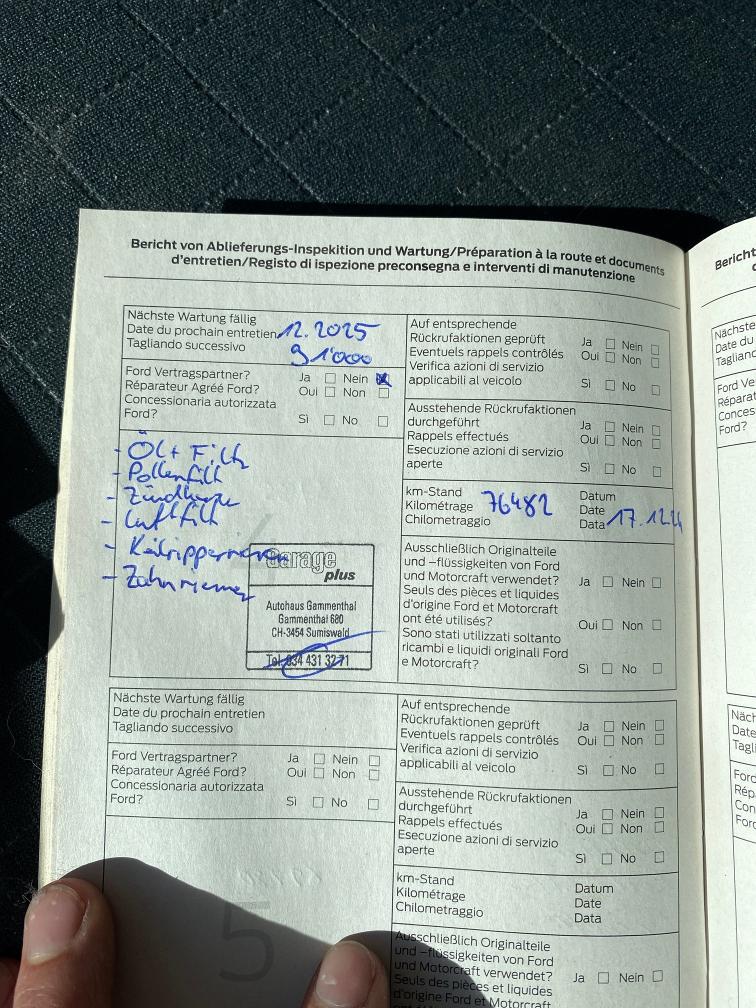 Bericht von Ablieferungs-Inspektion und Wartung/Préparation à la route et documents
d'entretien/Registo di ispezione preconsegna e interventi di manutenzione
Nächste Wartung fällig
Date du prochain entretien 12.2025
Tagliando successivo
91'000
Ford Vertragspartner? Ja Nein
Réparateur Agréé Ford? Oui Non
Concessionaria autorizzata
Ford? Sì No
- Öl + Filt
- Pollenfilt
- Zündkerze
- Luftfilt
- Keilrippenriemen
- Zahnriemen
Garage
plus
Autohaus Gammenthal
Gammenthal 680
CH-3454 Sumiswald
Tel. 034 431 32 71
Auf entsprechende
Rückrufaktionen geprüft Ja Nein
Eventuels rappels contrôlés Oui Non
Verifica azioni di servizio
applicabili al veicolo Sì No
Ausstehende Rückrufaktionen
durchgeführt Ja Nein
Rappels effectués Oui Non
Esecuzione azioni di servizio
aperte Sì No
km-Stand Datum
Kilométrage 76482 Date
Chilometraggio Data 17.12.24
Ausschließlich Originalteile
und –flüssigkeiten von Ford
und Motorcraft verwendet? Ja Nein
Seuls des pièces et liquides
d'origine Ford et Motorcraft
ont été utilisés? Oui Non
Sono stati utilizzati soltanto
ricambi e liquidi originali Ford
e Motorcraft? Sì No
Nächste Wartung fällig
Date du prochain entretien
Tagliando successivo
Ford Vertragspartner? Ja Nein
Réparateur Agréé Ford? Oui Non
Concessionaria autorizzata
Ford? Sì No
Auf entsprechende
Rückrufaktionen geprüft Ja Nein
Eventuels rappels contrôlés Oui Non
Verifica azioni di servizio
applicabili al veicolo Sì No
Ausstehende Rückrufaktionen
durchgeführt Ja Nein
Rappels effectués Oui Non
Esecuzione azioni di servizio
aperte Sì No
km-Stand Datum
Kilométrage Date
Chilometraggio Data
Ausschließlich Originalteile
und –flüssigkeiten von Ford
und Motorcraft verwendet? Ja Nein
Seuls des pièces et liquides
d'origine Ford et Motorcraft
5
Bericht
Nächste
Date du
Tagliand
Ford Ve
Réparat
Conces
Ford?
Näch
Date
Tagli
Ford
Rép
Con
Ford